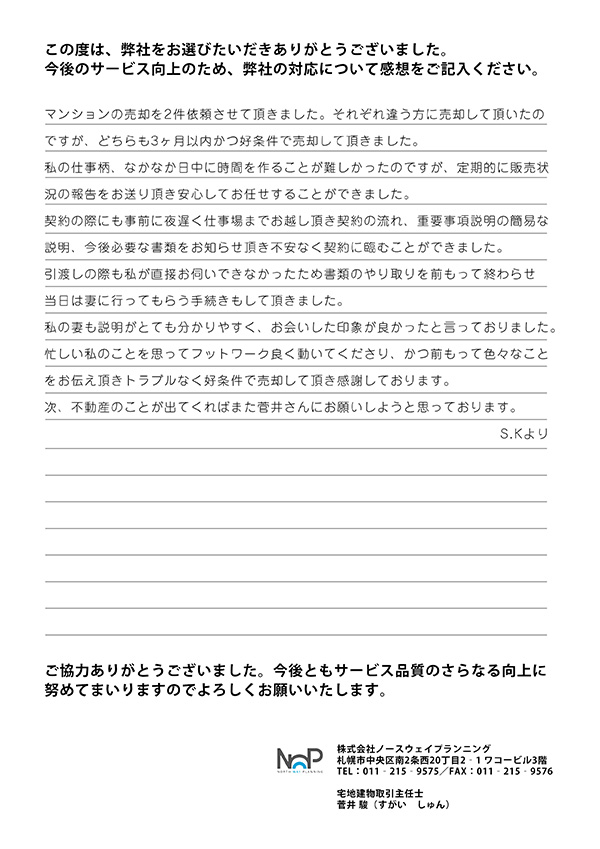 この度は、弊社をお選びたいだきありがとうございました。
今後のサービス向上のため、弊社の対応について感想をご記入ください。
マンションの売却を2件依頼させて頂きました。それぞれ違う方に売却して頂いたの
ですが、どちらも3ヶ月以内かつ好条件で売却して頂きました。
私の仕事柄、なかなか日中に時間を作ることが難しかったのですが、定期的に販売状
況の報告をお送り頂き安心してお任せすることができました。
契約の際にも事前に夜遅く仕事場までお越し頂き契約の流れ、重要事項説明の簡易な
説明、今後必要な書類をお知らせ頂き不安なく契約に臨むことができました。
引渡しの際も私が直接お伺いできなかったため書類のやり取りを前もって終わらせ
当日は妻に行ってもらう手続きもして頂きました。
私の妻も説明がとても分かりやすく、お会いした印象が良かったと言っておりました。
忙しい私のことを思ってフットワーク良く動いてくださり、かつ前もって色々なこと
をお伝え頂きトラブルなく好条件で売却して頂き感謝しております。
次、不動産のことが出てくればまた菅井さんにお願いしようと思っております。
S.Kより
ご協力ありがとうございました。今後ともサービス品質のさらなる向上に
努めてまいりますのでよろしくお願いいたします。
NaP
NORTH WAY PLANNING
株式会社ノースウェイプランニング
札幌市中央区南2条西20丁目2‐1 ワコービル3階
TEL：011‐215‐9575／FAX：011‐215‐9576
宅地建物取引主任士
菅井 駿（すがい　しゅん）